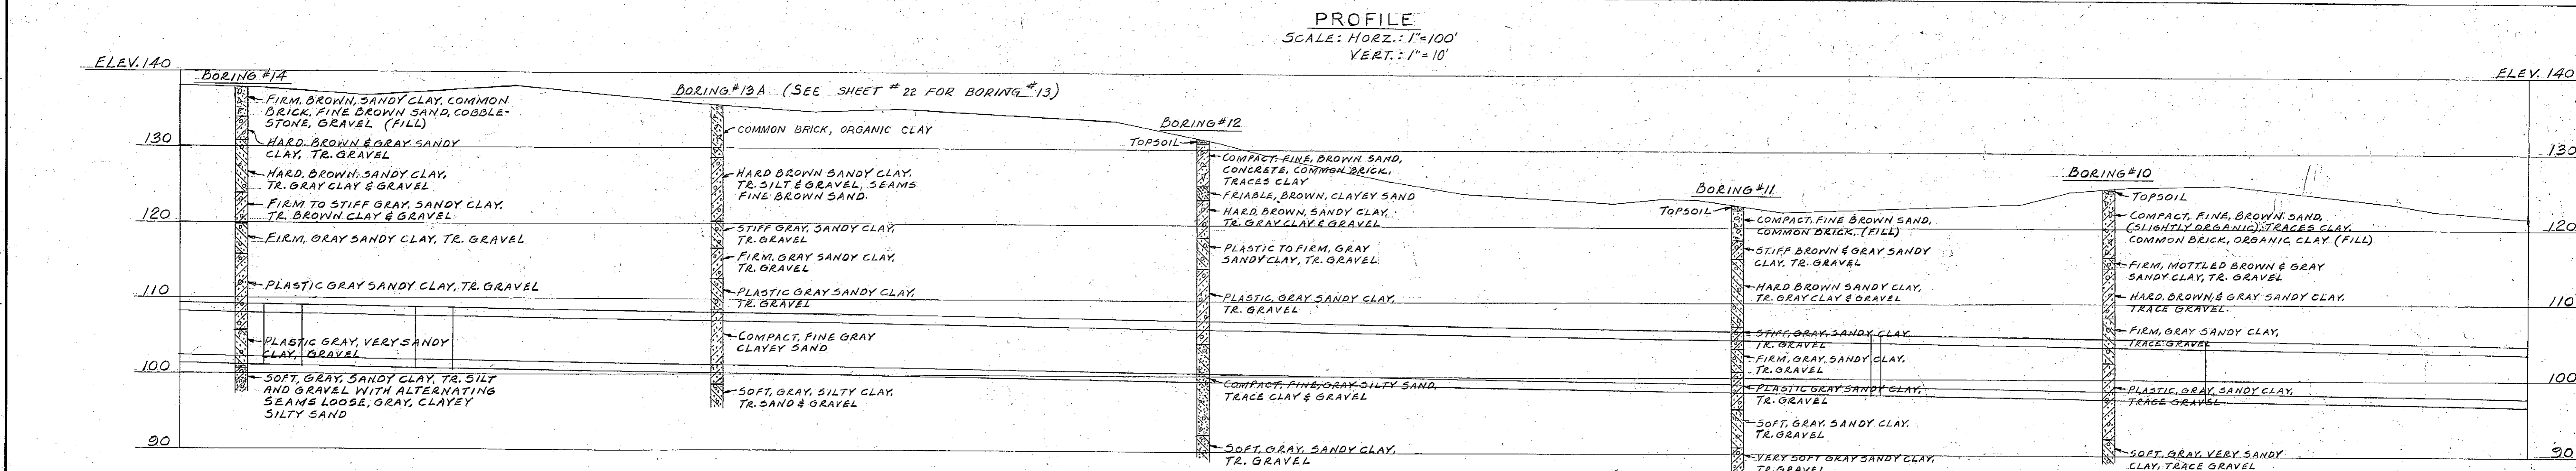 PROFILE
SCALE: HORZ.: 1"=100'
VERT.: 1"=10'
ELEV. 140
130
120
110
100
90
BORING #14
FIRM, BROWN, SANDY CLAY, COMMON
BRICK, FINE BROWN SAND, COBBLE-
STONE, GRAVEL (FILL)
HARD, BROWN & GRAY SANDY
CLAY, TR. GRAVEL
HARD, BROWN, SANDY CLAY,
TR. GRAY CLAY & GRAVEL
FIRM TO STIFF GRAY, SANDY CLAY,
TR. BROWN CLAY & GRAVEL
FIRM, GRAY SANDY CLAY, TR. GRAVEL
PLASTIC GRAY SANDY CLAY, TR. GRAVEL
PLASTIC GRAY, VERY SANDY
CLAY, GRAVEL
SOFT, GRAY, SANDY CLAY, TR. SILT
AND GRAVEL WITH ALTERNATING
SEAMS LOOSE, GRAY, CLAYEY
SILTY SAND
BORING #13A (SEE SHEET #22 FOR BORING #13)
COMMON BRICK, ORGANIC CLAY
HARD BROWN SANDY CLAY,
TR. SILT & GRAVEL, SEAMS
FINE BROWN SAND
STIFF GRAY, SANDY CLAY,
TR. GRAVEL
FIRM, GRAY SANDY CLAY,
TR. GRAVEL
PLASTIC GRAY SANDY CLAY,
TR. GRAVEL
COMPACT, FINE GRAY
CLAYEY SAND
SOFT, GRAY, SILTY CLAY,
TR. SAND & GRAVEL
BORING #12
TOPSOIL
COMPACT, FINE, BROWN SAND,
CONCRETE, COMMON BRICK,
TRACES CLAY
FRIABLE, BROWN, CLAYEY SAND
HARD, BROWN, SANDY CLAY,
TR. GRAY CLAY & GRAVEL
PLASTIC TO FIRM, GRAY
SANDY CLAY, TR. GRAVEL
PLASTIC, GRAY SANDY CLAY,
TR. GRAVEL
COMPACT, FINE, GRAY SILTY SAND,
TRACE CLAY & GRAVEL
SOFT, GRAY, SANDY CLAY,
TR. GRAVEL
BORING #11
TOPSOIL
COMPACT, FINE BROWN SAND,
COMMON BRICK, (FILL)
STIFF BROWN & GRAY SANDY
CLAY, TR. GRAVEL
HARD BROWN SANDY CLAY,
TR. GRAY CLAY & GRAVEL
STIFF, GRAY, SANDY CLAY,
TR. GRAVEL
FIRM, GRAY, SANDY CLAY,
TR. GRAVEL
PLASTIC GRAY SANDY CLAY,
TR. GRAVEL
SOFT, GRAY, SANDY CLAY,
TR. GRAVEL
VERY SOFT GRAY SANDY CLAY,
TR. GRAVEL
BORING #10
TOPSOIL
COMPACT, FINE, BROWN SAND,
(SLIGHTLY ORGANIC), TRACES CLAY,
COMMON BRICK, ORGANIC CLAY (FILL)
FIRM, MOTTLED BROWN & GRAY
SANDY CLAY, TR. GRAVEL
HARD, BROWN & GRAY SANDY CLAY,
TRACE GRAVEL
FIRM, GRAY SANDY CLAY,
TRACE GRAVEL
PLASTIC, GRAY, SANDY CLAY,
TRACE GRAVEL
SOFT, GRAY, VERY SANDY
CLAY, TRACE GRAVEL
ELEV. 140
130
120
110
100
90